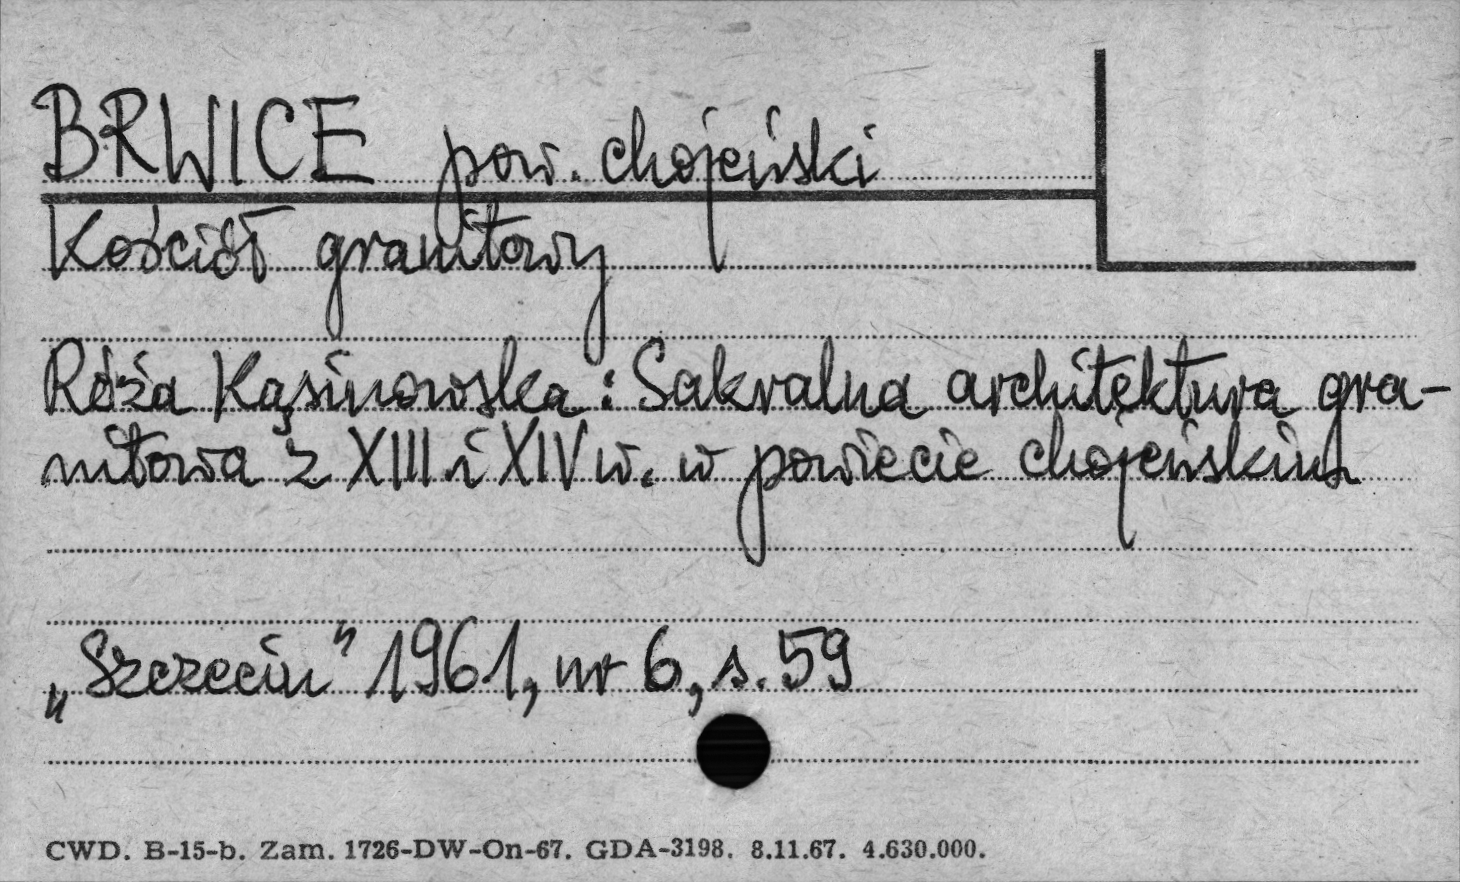 BRWICE pow. chojeński
Kościół granitowy
Róża Kąsinowska: Sakralna architektura gra-
nitowa z XIII i XIV w. w powiecie chojeńskim
„Szczecin" 1961, nr 6, s. 59
CWD. B-15-b. Zam. 1726-DW-On-67. GDA-3198. 8.11.67. 4.630.000.